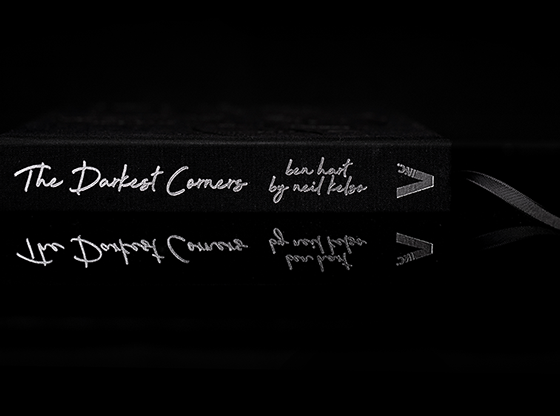 The Darkest Corners
ben hart
by neil kelso
V INC